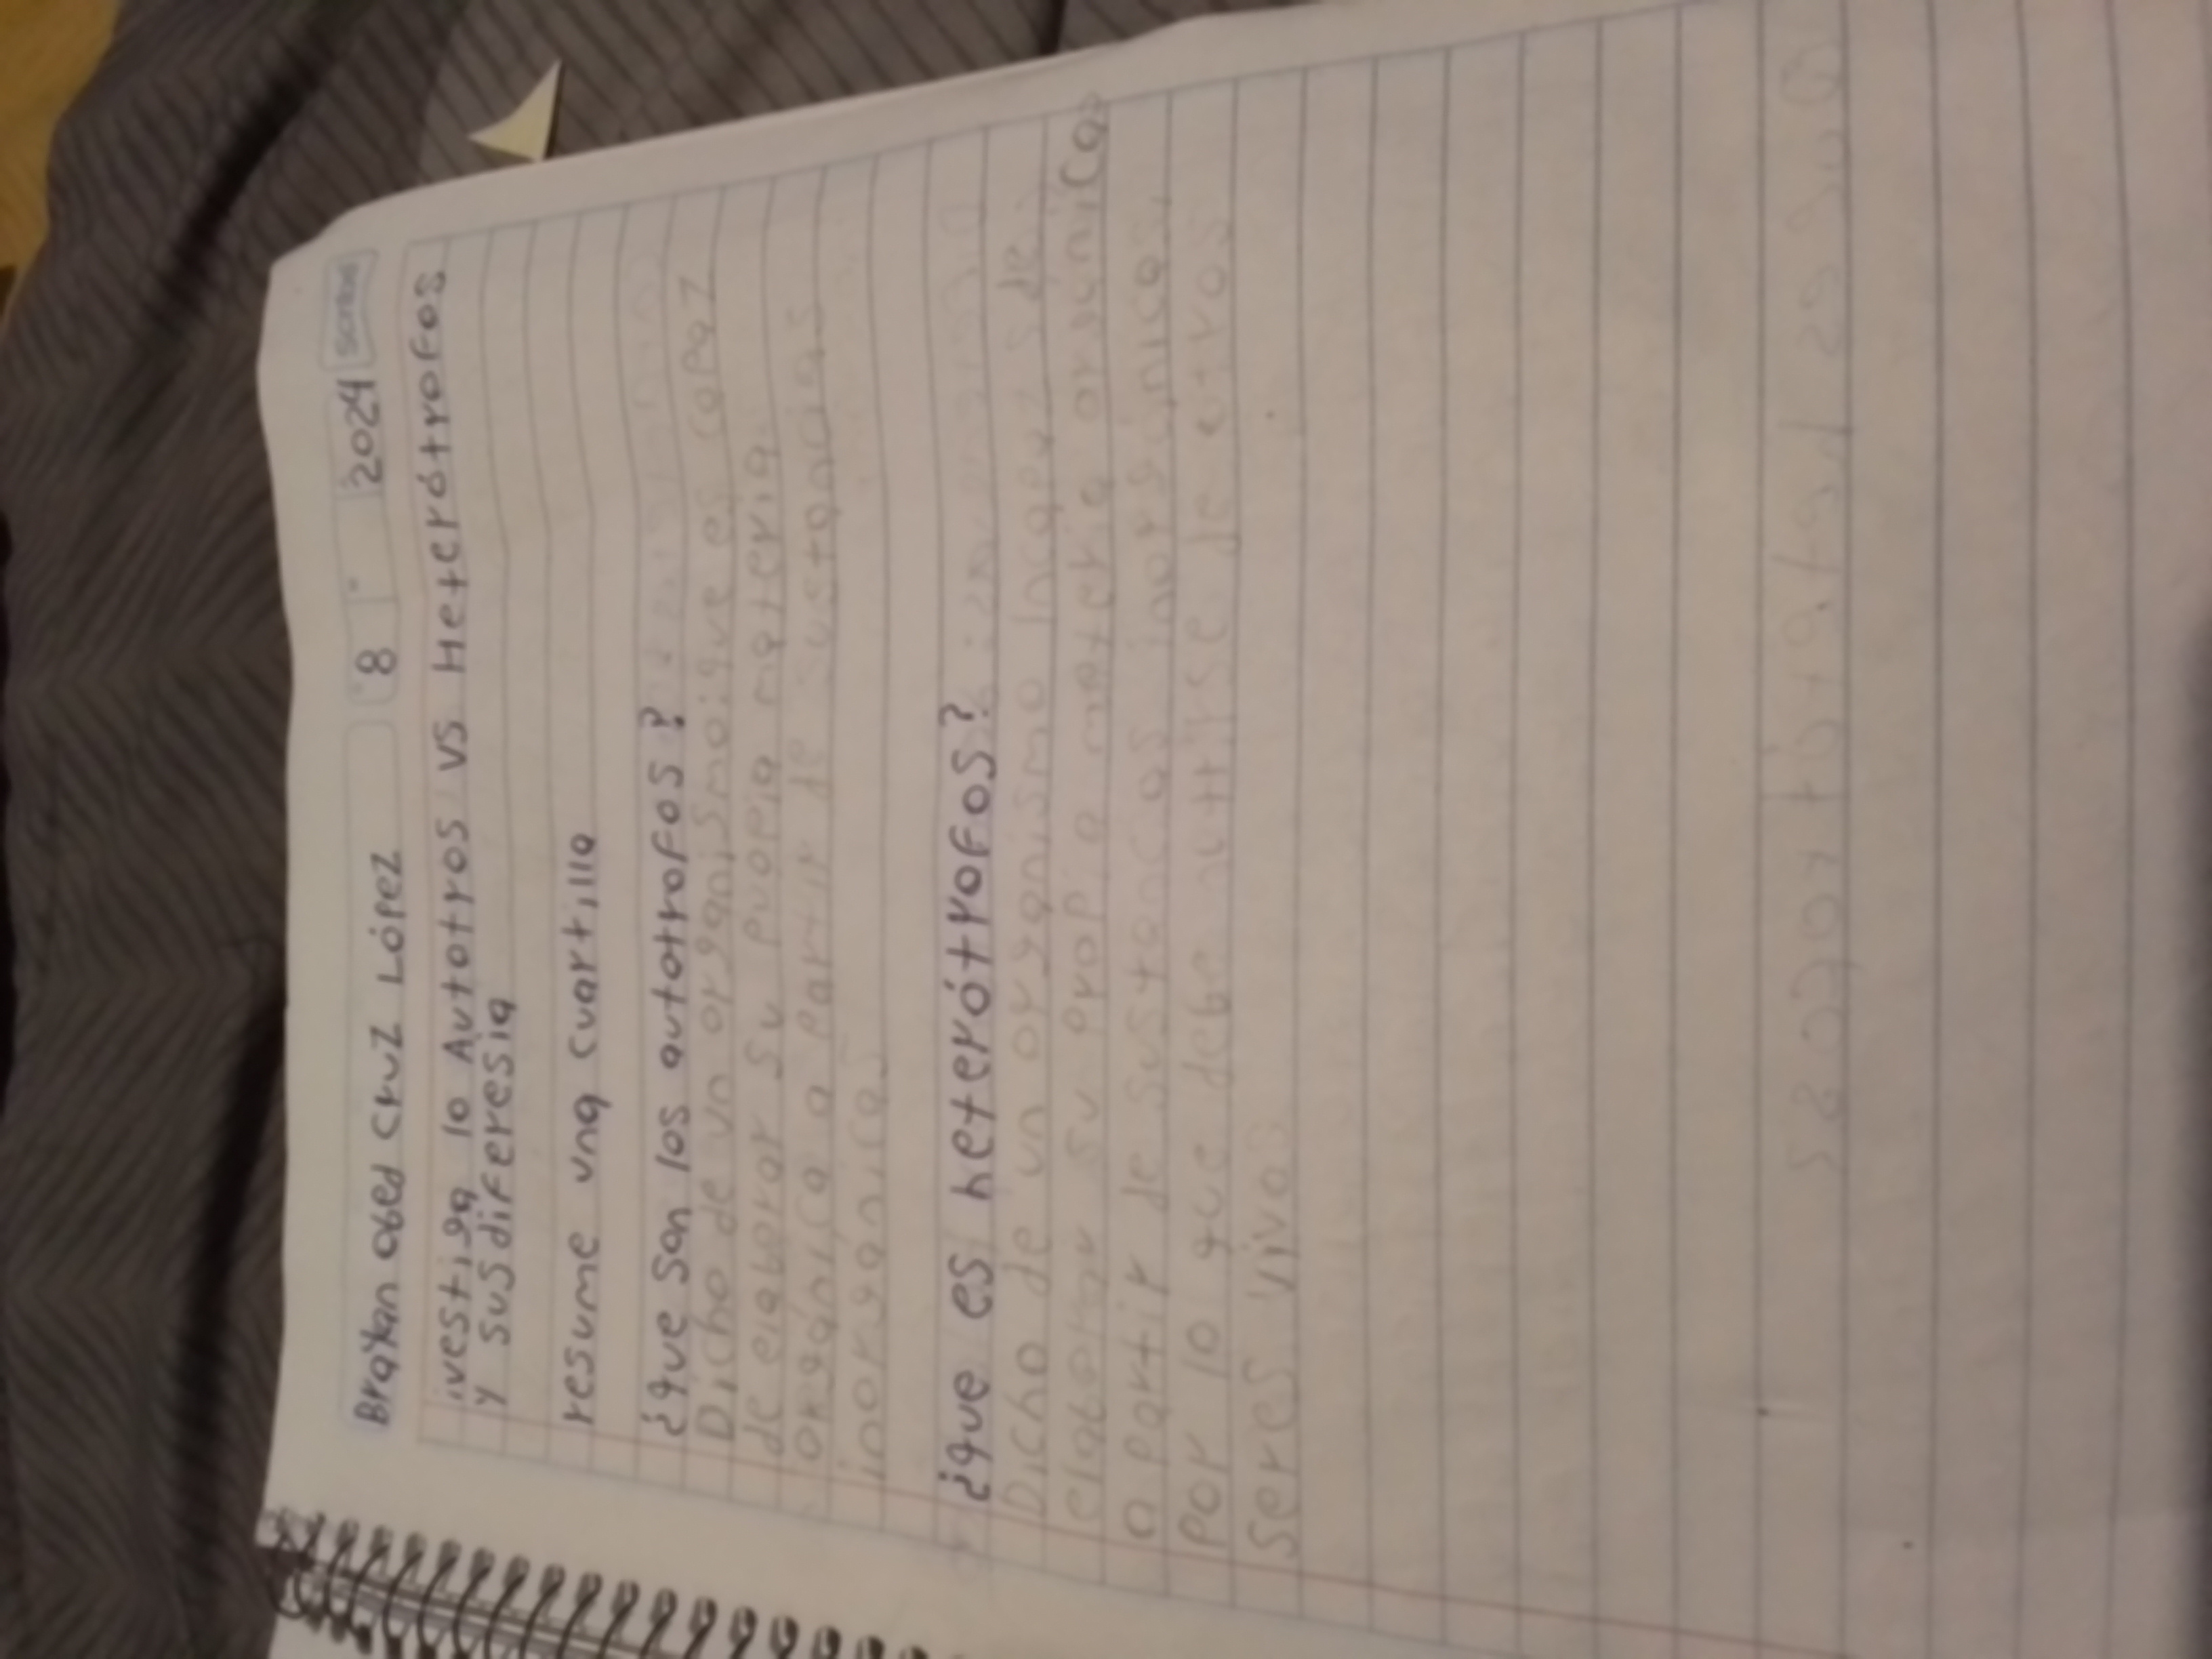 Brayan obed cruz López 8 2024 Scribe
ivestiga lo Autotros vs Heterótrofos
y sus diferesia
resume una cuartilla
¿que son los autotrofos?
Dicho de un organismo: que es capaz
de elaborar su propia materia
orgánica a partir de sustancias
inorganicas
¿que es heterótrofos?
Dicho de un organismo incapaz de
elaborar su propia materia organica
a partir de sustancias inorganicas,
por lo que debe nutrirse de otros
seres vivos